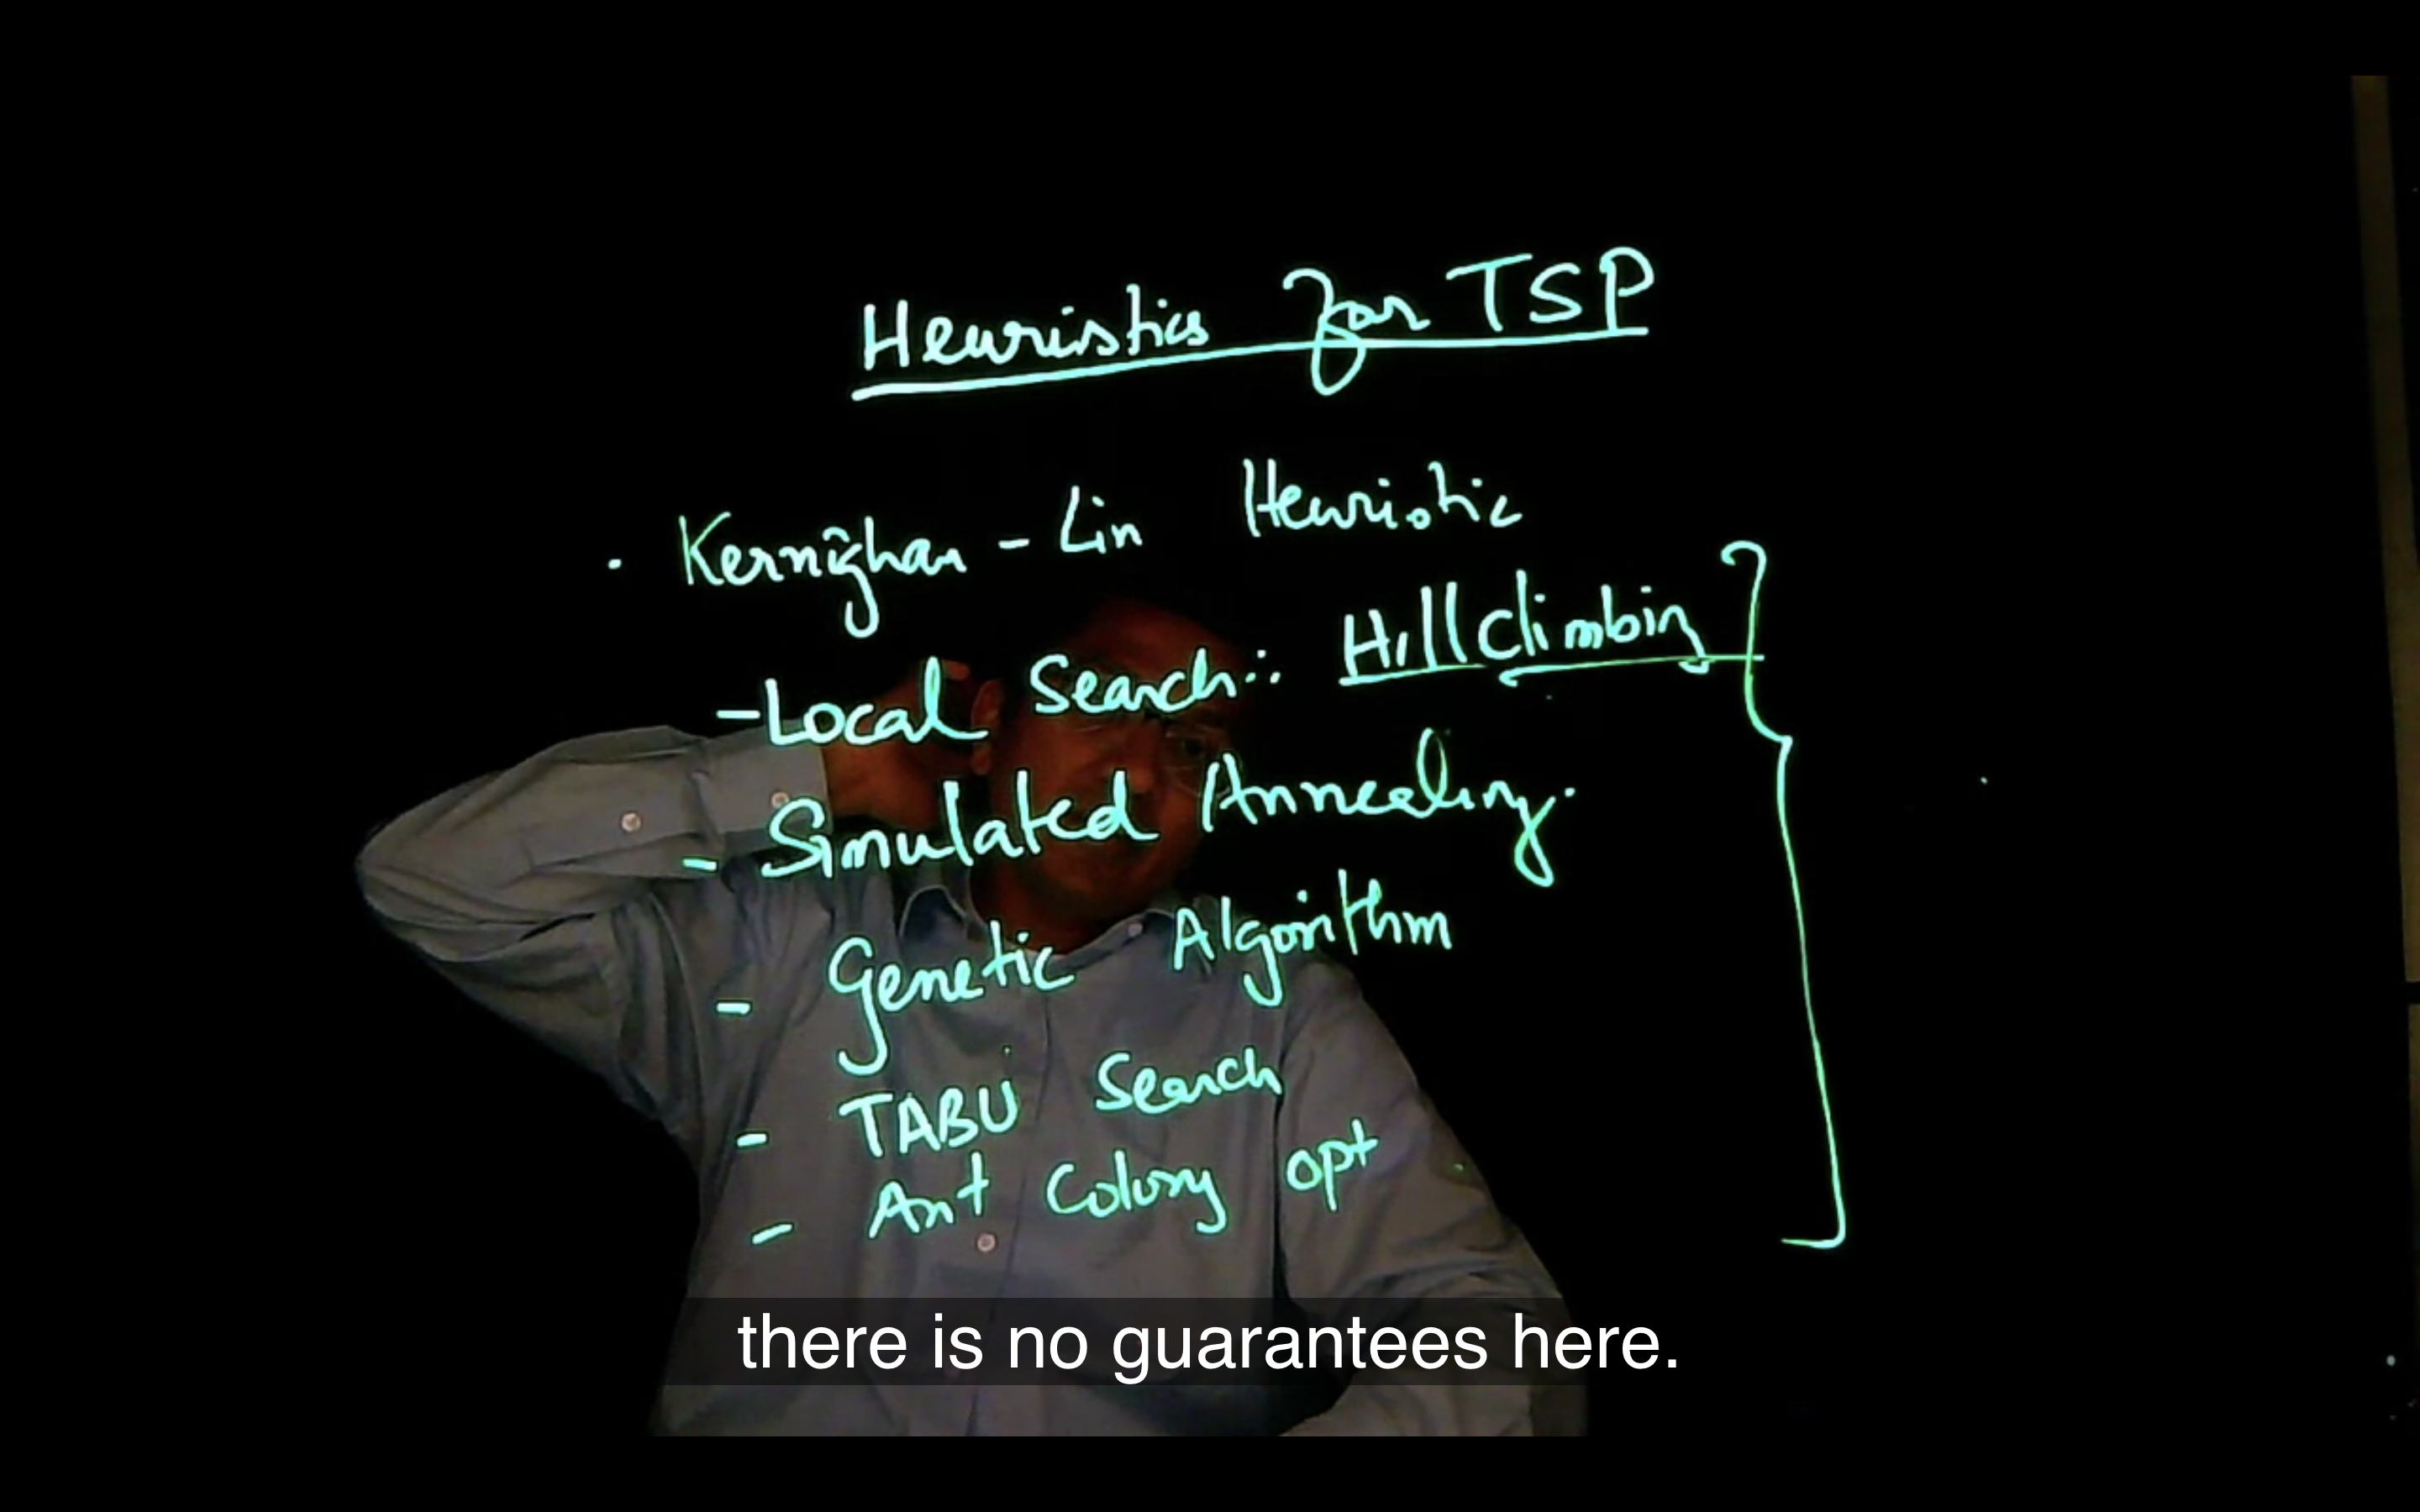 Heuristics for TSP
· Kernighan - Lin Heuristic
- Local Search: Hill Climbing
- Simulated Annealing.
- Genetic Algorithm
- TABU Search
- Ant Colony opt
there is no guarantees here.